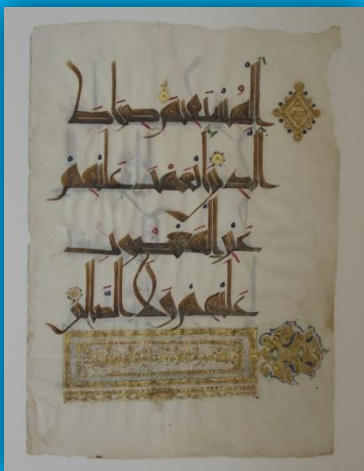 المستقيم صراط
الذين انعمت عليهم
غير المغضوب
عليهم ولا الضالين